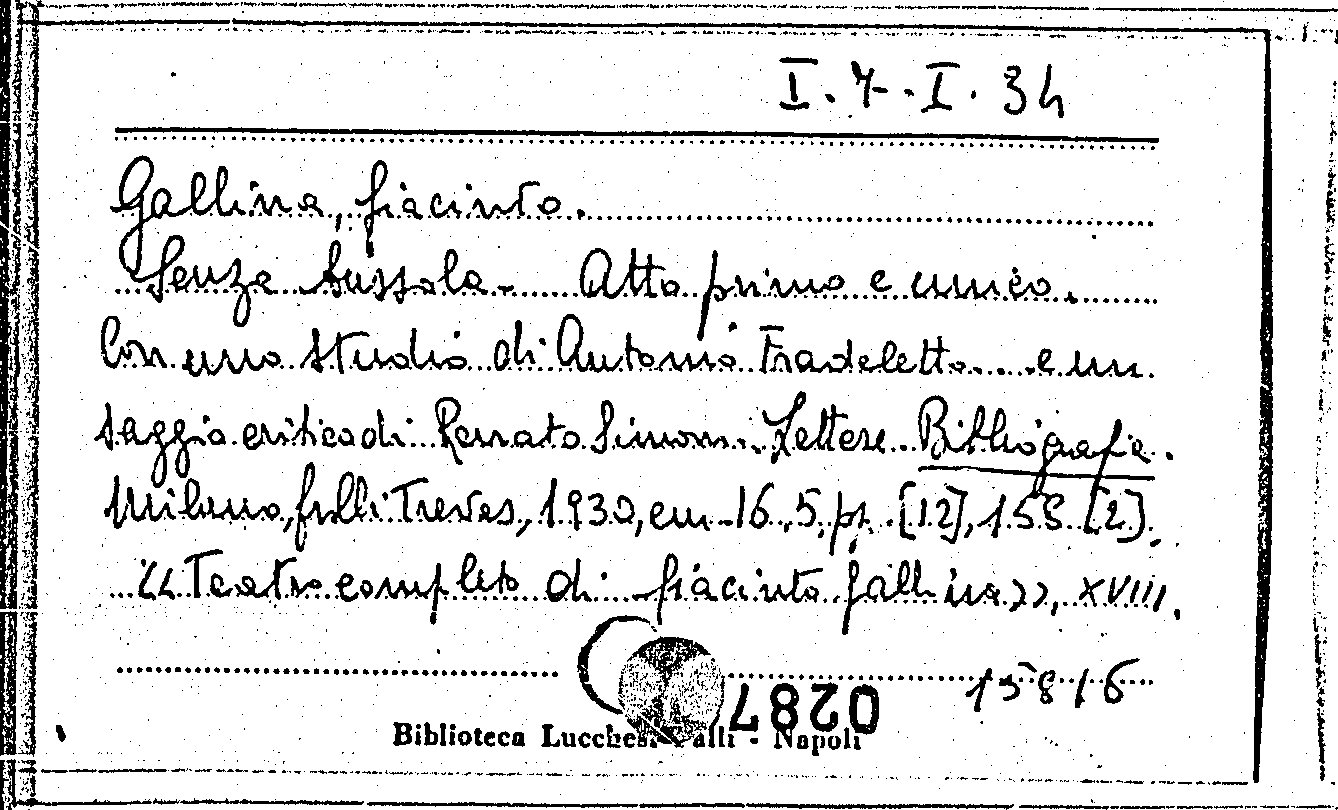 I. 7. I. 34
Gallina, Giacinto.
Senza bussola. Atto primo e unico.
Con uno studio di Antonio Fradeletto... e un
saggio critico di Renato Simoni. Lettere. Bibliografia.
Milano, f.lli Treves, 1930, cm. 16,5, pp. [12], 158 [2].
"Teatro completo di Giacinto Gallina", XVIII.
15816
0287
Biblioteca Lucchesi Palli - Napoli